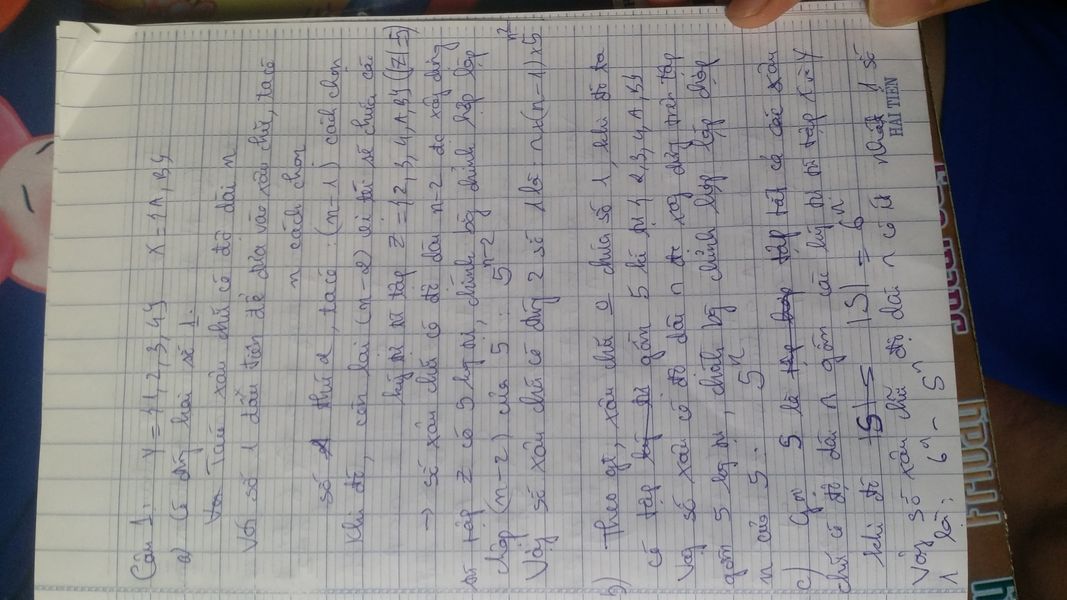 Câu 1: Y = {1, 2, 3, 4} X = {A, B}
a) Có đúng hai số 1.
Tạo xâu chữ có độ dài n
Với số 1 đầu tiên để đưa vào xâu chữ, ta có
n cách chọn
số 1 thứ 2, ta có: (n-1) cách chọn
Khi đó, còn lại (n-2) vị trí sẽ chứa các
ký tự từ tập Z = {2, 3, 4, A, B} (|Z| = 5)
→ số xâu chữ có độ dài n-2 đc xây dựng
từ tập Z có 5 ký tự, chính bằng chỉnh hợp lặp
chập (n-2) của 5 : 5^(n-2)
Vậy số xâu chữ có đúng 2 số 1 là: n×(n-1)×5^(n-2)
b) Theo gt, xâu chữ 0 chứa số 1, khi đó ta
có tập gồm 5 kí tự { 2, 3, 4, A, B}
Vậy số xâu có độ dài n đc xây dựng trên tập
gồm 5 ký tự, chính bằng chỉnh hợp lặp chập
n của 5 : 5^n
c) Gọi S là tập tất cả các xâu
chữ có độ dài n gồm các ký tự từ tập X và Y
khi đó |S| = 6^n
Vậy số xâu chữ độ dài n có ít nhất 1 số
1 là: 6^n - 5^n
HẢI TIẾN